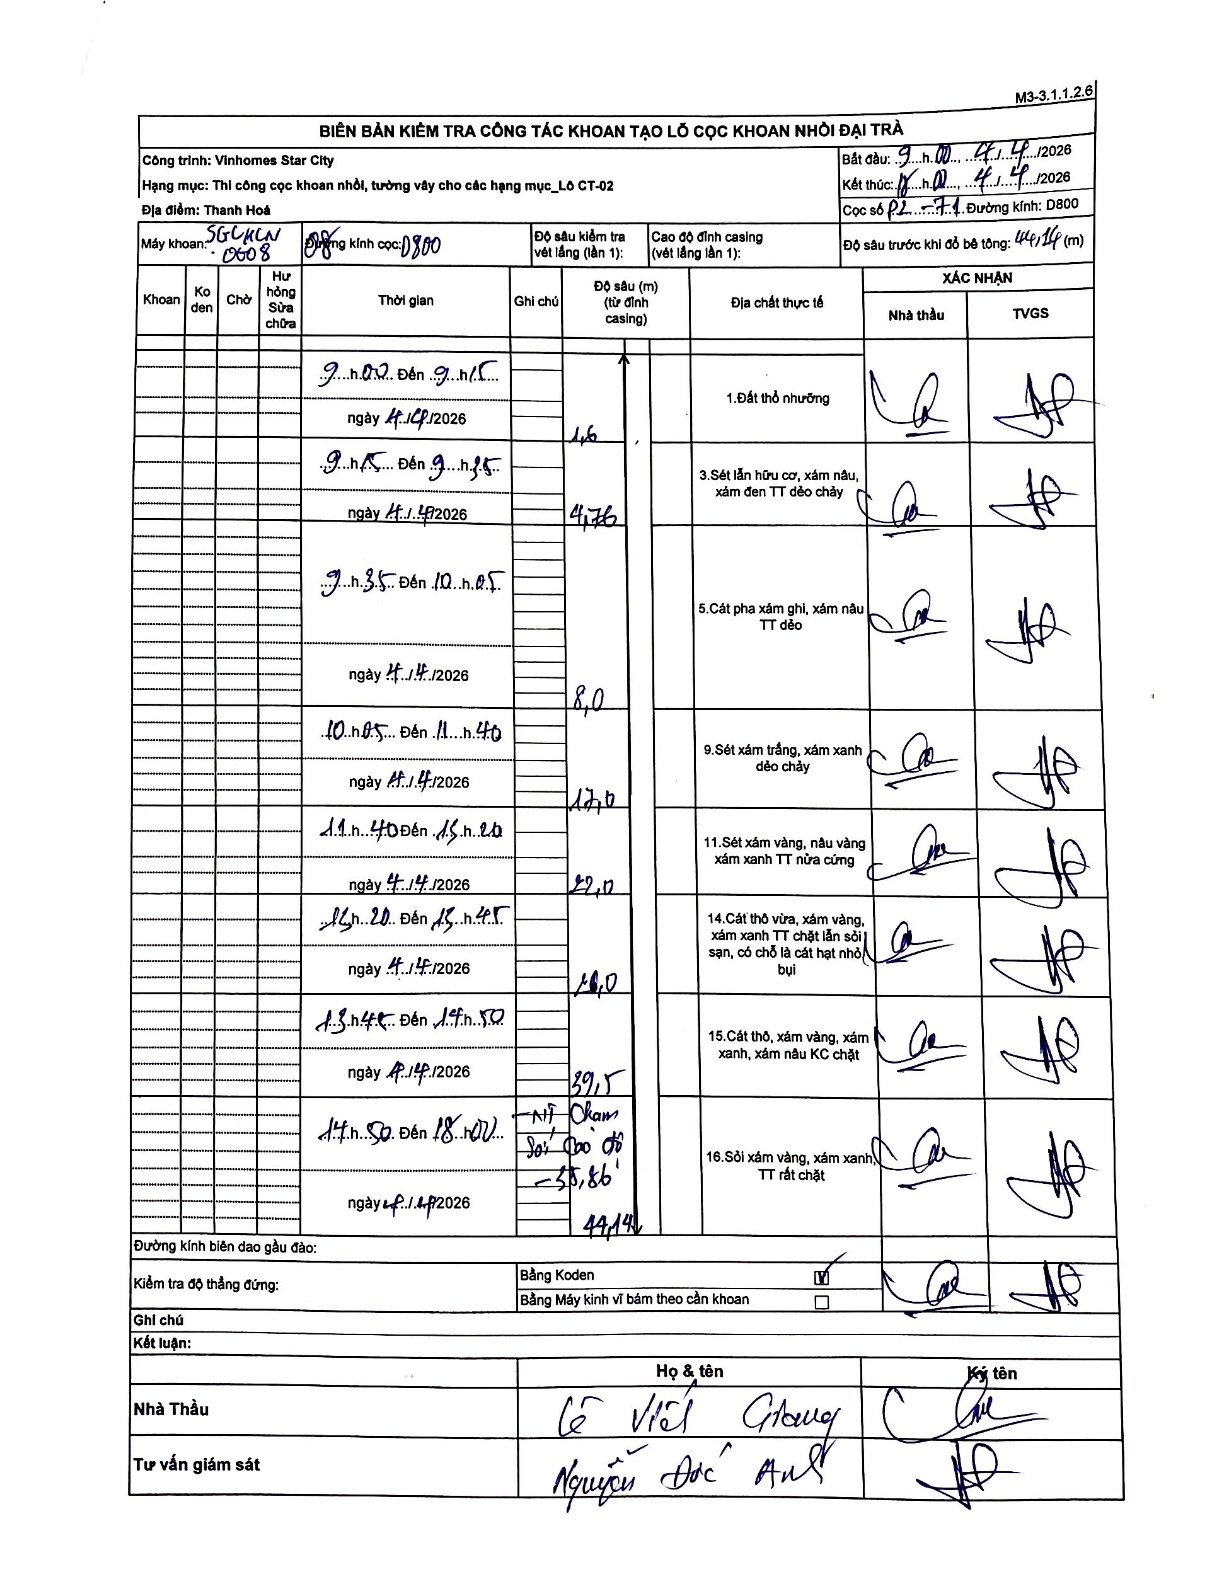 M3-3.1.1.2.6
BIÊN BẢN KIỂM TRA CÔNG TÁC KHOAN TẠO LỖ CỌC KHOAN NHỒI ĐẠI TRÀ
Công trình: Vinhomes Star City
Bắt đầu: 9 h 00, 4/4/2026
Hạng mục: Thi công cọc khoan nhồi, tường vây cho các hạng mục_Lô CT-02
Kết thúc: 18 h 00, 4/4/2026
Địa điểm: Thanh Hoá
Cọc số P2-71 Đường kính: D800
Máy khoan: SGCKCN 0608
08
Đường kính cọc: D800
Độ sâu kiểm tra vét lắng (lần 1):
Cao độ đỉnh casing (vét lắng lần 1):
Độ sâu trước khi đổ bê tông: 44,14 (m)
Khoan
Ko den
Chờ
Hư hỏng Sửa chữa
Thời gian
Ghi chú
Độ sâu (m) (từ đỉnh casing)
Địa chất thực tế
XÁC NHẬN
Nhà thầu
TVGS
9 h 00 Đến 9 h 15
ngày 4/4/2026
1,6
1.Đất thổ nhưỡng
9 h 15 Đến 9 h 35
ngày 4/4/2026
4,76
3.Sét lẫn hữu cơ, xám nâu,
xám đen TT dẻo chảy
9 h 35 Đến 10 h 05
ngày 4/4/2026
8,0
5.Cát pha xám ghi, xám nâu
TT dẻo
10 h 05 Đến 11 h 40
ngày 4/4/2026
17,0
9.Sét xám trắng, xám xanh
dẻo chảy
11 h 40 Đến 13 h 20
ngày 4/4/2026
22,0
11.Sét xám vàng, nâu vàng
xám xanh TT nửa cứng
13 h 20 Đến 13 h 45
ngày 4/4/2026
14.Cát thô vừa, xám vàng,
xám xanh TT chặt lẫn sỏi
sạn, có chỗ là cát hạt nhỏ
bụi
13 h 45 Đến 14 h 50
ngày 4/4/2026
39,5
15.Cát thô, xám vàng, xám
xanh, xám nâu KC chặt
14 h 50 Đến 18 h 00
ngày 4/4/2026
NT Chạm
Sỏi Cao độ
-35,86
44,14
16.Sỏi xám vàng, xám xanh,
TT rất chặt
Đường kính biên dao gầu đào:
Kiểm tra độ thẳng đứng:
Bằng Koden
Bằng Máy kinh vĩ bám theo cần khoan
Ghi chú
Kết luận:
Họ & tên
Ký tên
Nhà Thầu
Lê Viết Giang
Tư vấn giám sát
Nguyễn Đức Anh